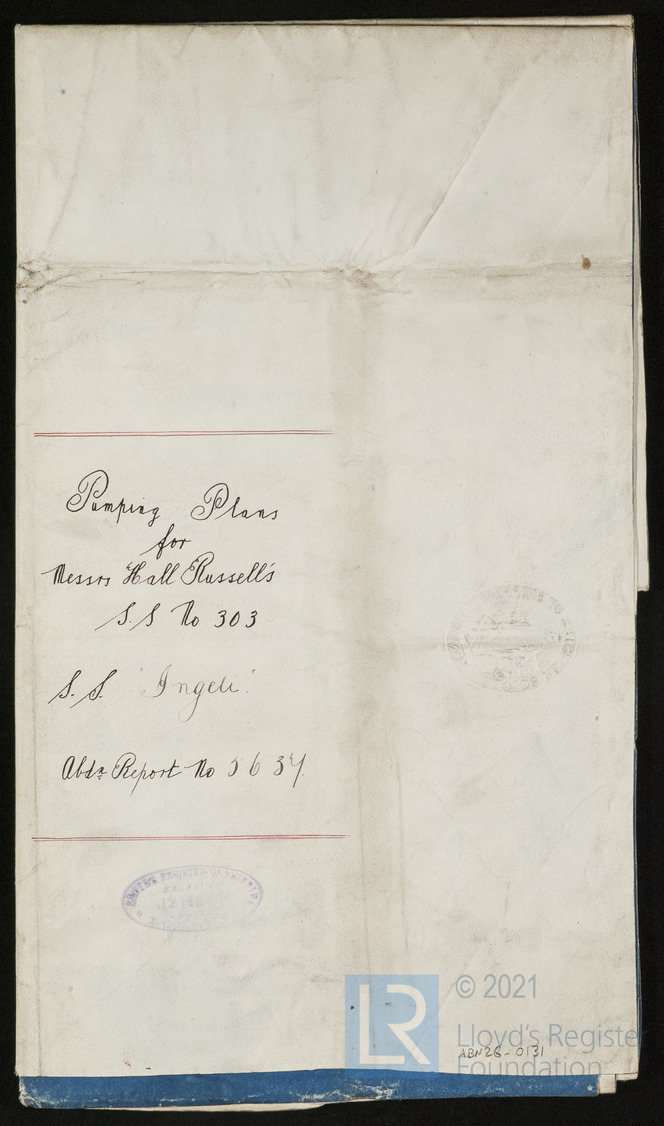 Pumping Plans
for
Messrs Hall Russell's
S.S No 303
S.S. "Ingeli"
Abdn Report No 5634
LLOYD'S REGISTER OF SHIPPING
LR
© 2021
Lloyd's Register
Foundation
ABN26-0131